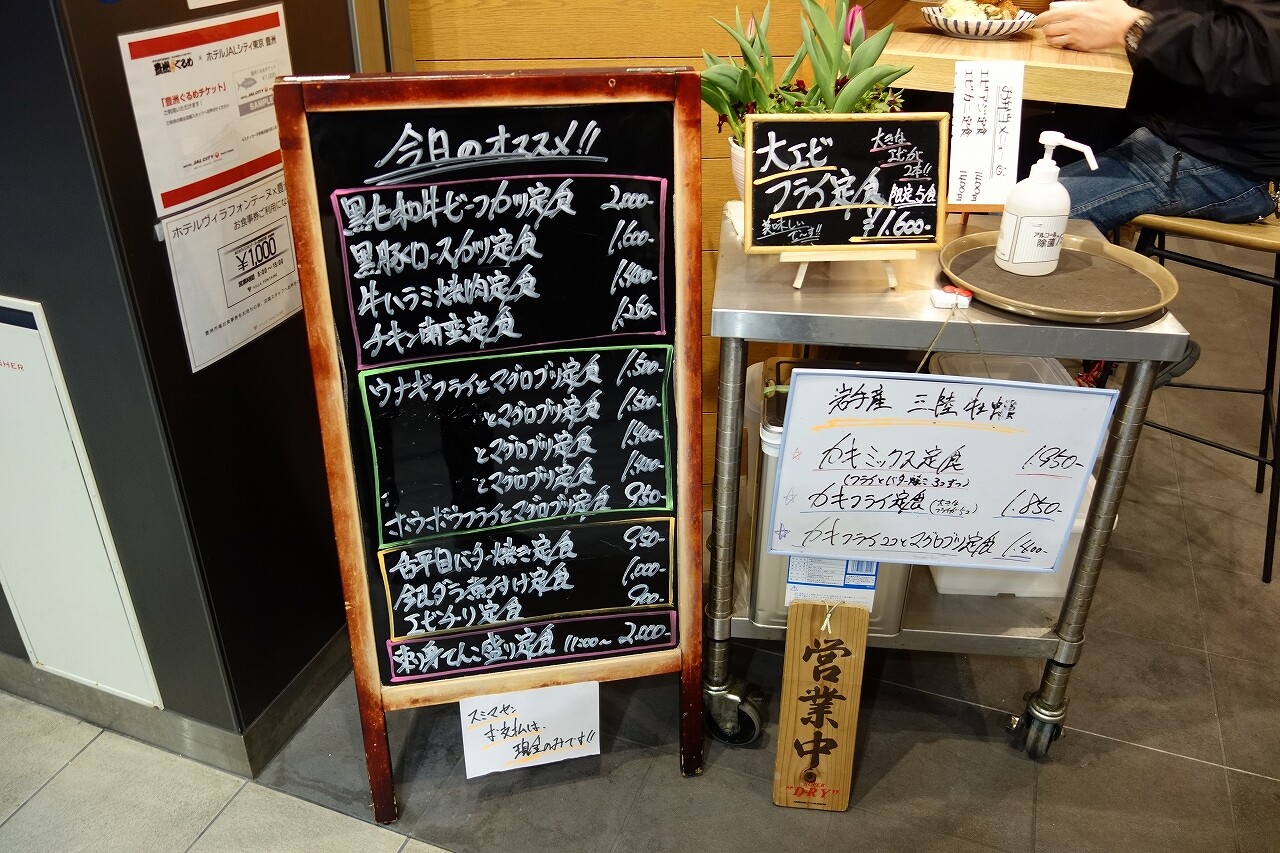 豊洲ぐるめ × ホテルJALシティ東京 豊洲
「豊洲ぐるめチケット」
ご利用いただけます!
SAMPLE
JAL CITY
ホテルヴィラフォンテーヌ×豊洲
お食事券ご利用にな
¥1,000
今日のオススメ!!
黒毛和牛ビーフカツ定食 2,000-
黒豚ロースカツ定食 1,600-
牛ハラミ焼肉定食 1,400-
チキン南蛮定食 1,250-
ウナギフライとマグロブツ定食 1,500-
とマグロブツ定食 1,500-
とマグロブツ定食 1,400-
とマグロブツ定食 1,400-
ホウボウフライとマグロブツ定食 950-
舌平目バター焼き定食 950-
銀ダラ煮付け定食 1,000-
エビチリ定食 900-
刺身てんこ盛り定食 11:00~ 2,000-
スミマセン
お支払は、
現金のみです!!
大エビ
フライ定食
大きな
エビが
2本!!
限定5食
美味しい
で〜す!!
¥1,600-
アルコール
除菌
岩手産 三陸牡蠣
カキミックス定食 1,950-
(フライとバター焼き 3コずつ)
カキフライ定食 (大きなフライが5コ) 1,850-
カキフライ2コとマグロブツ定食 1,400-
営業中
"DRY"